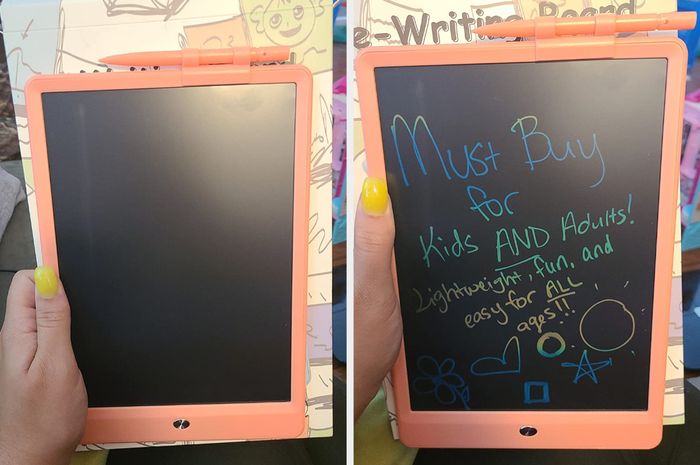 e-Writing Board
Must Buy
for
Kids AND Adults!
Lightweight, fun, and
easy for ALL
ages!!